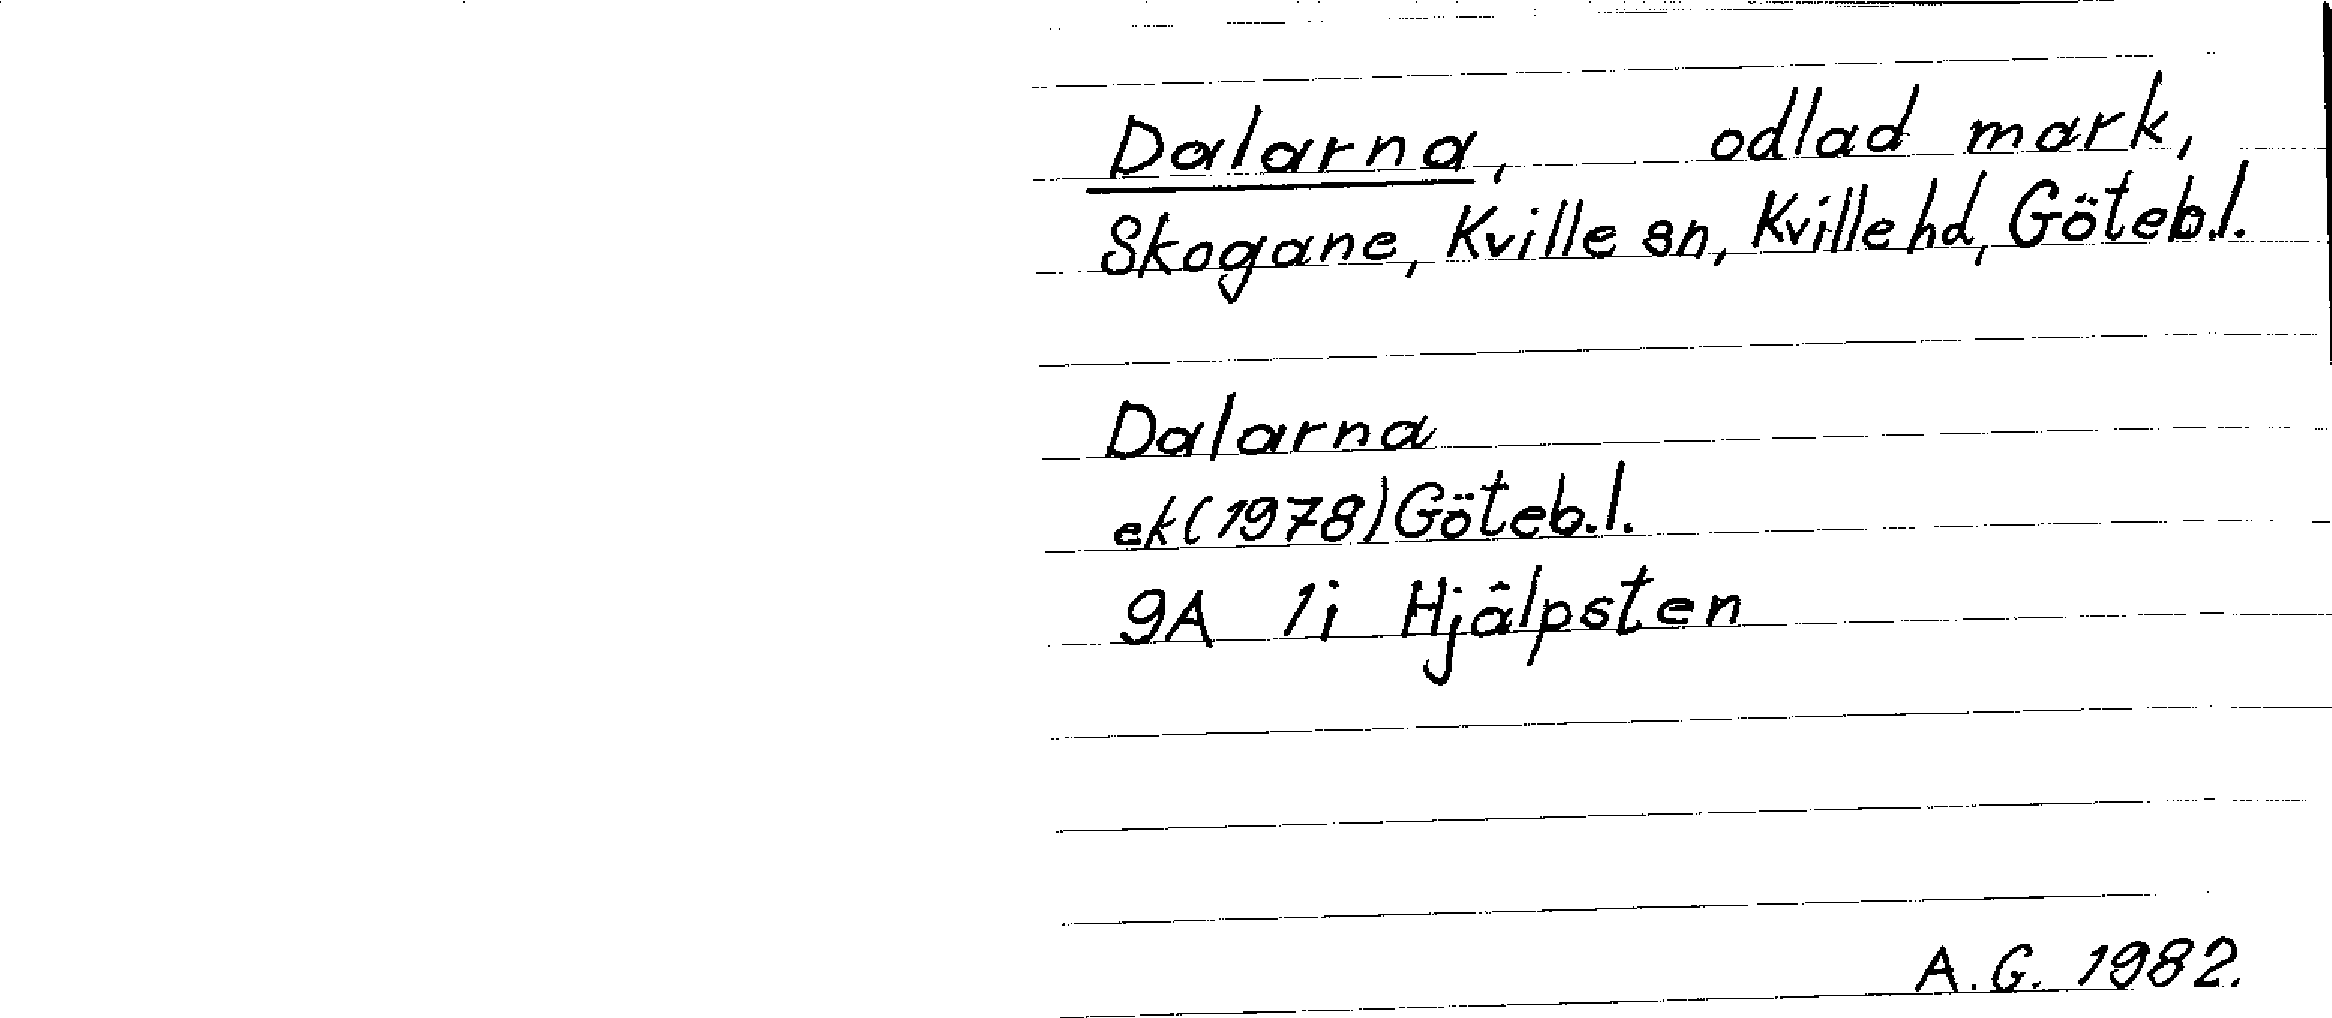 Dalarna, odlad mark,
Skogane, Kville sn, Kville hd, Göteb.l.
Dalarna
ek(1978)Göteb.l.
9A 1i Hjälpsten
A.G. 1982.